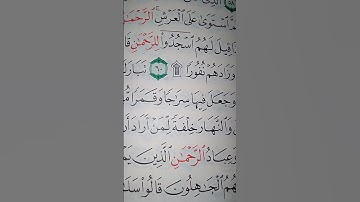 ٱسْتَوَىٰ عَلَى ٱلْعَرْشِ ۚ ٱلرَّحْمَٰنُ
قِيلَ لَهُمُ ٱسْجُدُوا۟ لِلرَّحْمَٰنِ قَا
وَزَادَهُمْ نُفُورًا ۩ ٦٠ تَبَارَكَ
وَجَعَلَ فِيهَا سِرَٰجًا وَقَمَرًا مُّ
وَٱلنَّهَارَ خِلْفَةً لِّمَنْ أَرَادَ أَن
وَعِبَادُ ٱلرَّحْمَٰنِ ٱلَّذِينَ يَمْ
هُمُ ٱلْجَٰهِلُونَ قَالُوا۟ سَلَٰ